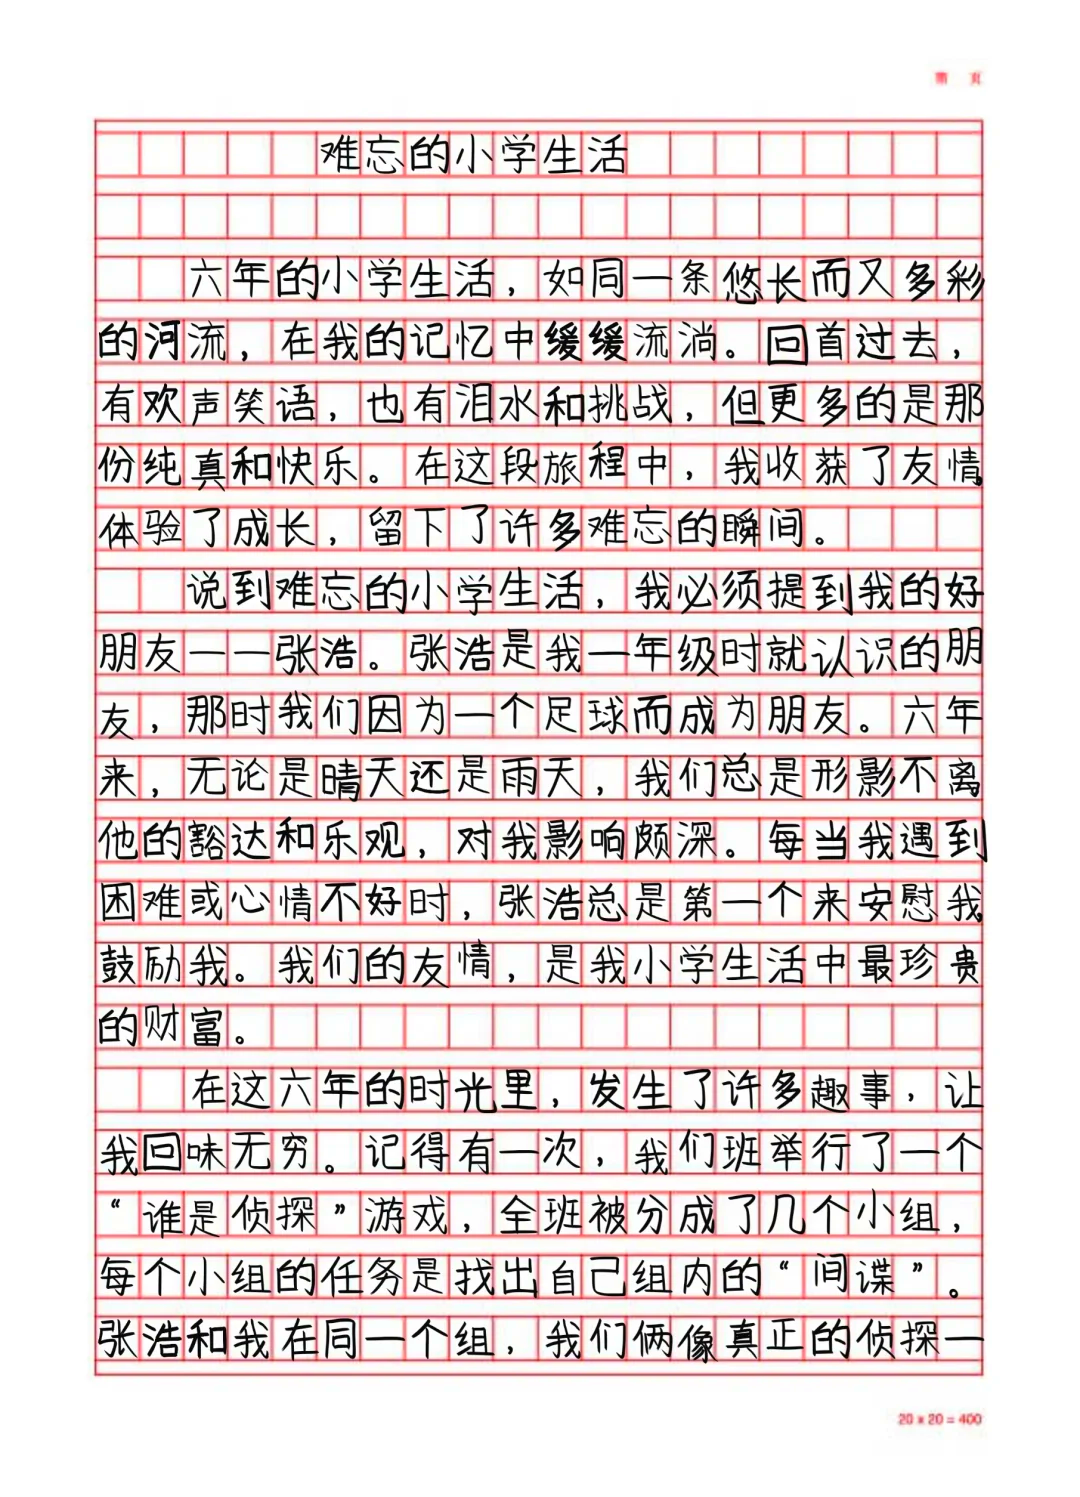 第 页
难忘的小学生活
六年的小学生活，如同一条悠长而又多彩
的河流，在我的记忆中缓缓流淌。回首过去，
有欢声笑语，也有泪水和挑战，但更多的是那
份纯真和快乐。在这段旅程中，我收获了友情，
体验了成长，留下了许多难忘的瞬间。
说到难忘的小学生活，我必须提到我的好
朋友——张浩。张浩是我一年级时就认识的朋
友，那时我们因为一个足球而成为朋友。六年
来，无论是晴天还是雨天，我们总是形影不离
他的豁达和乐观，对我影响颇深。每当我遇到
困难或心情不好时，张浩总是第一个来安慰我，
鼓励我。我们的友情，是我小学生活中最珍贵
的财富。
在这六年的时光里，发生了许多趣事，让
我回味无穷。记得有一次，我们班举行了一个
“谁是侦探”游戏，全班被分成了几个小组，
每个小组的任务是找出自己组内的“间谍”。
张浩和我在同一个组，我们俩像真正的侦探一
20 x 20 = 400